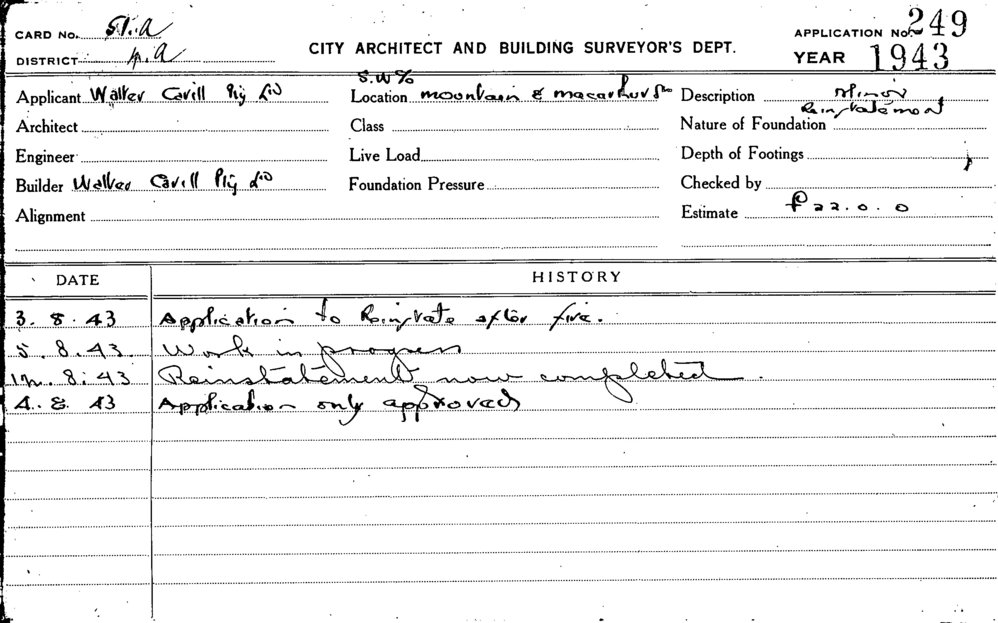 CARD No. 51.A
APPLICATION No. 249
DISTRICT
CITY ARCHITECT AND BUILDING SURVEYOR'S DEPT.
YEAR 1943
S.W %
Applicant Walter Cavill Pty Ltd
Location mountain & macarthur Sts
Description Minor
Reinstatement
Architect
Class
Nature of Foundation
Engineer
Live Load
Depth of Footings
Builder Walter Cavill Pty Ltd
Foundation Pressure
Checked by
Alignment
Estimate £22.0.0
DATE HISTORY
3.8.43 Application to Reinstate after fire.
5.8.43. Work in progress
8.43 Reinstatement now completed.
4.8.43 Application only approved